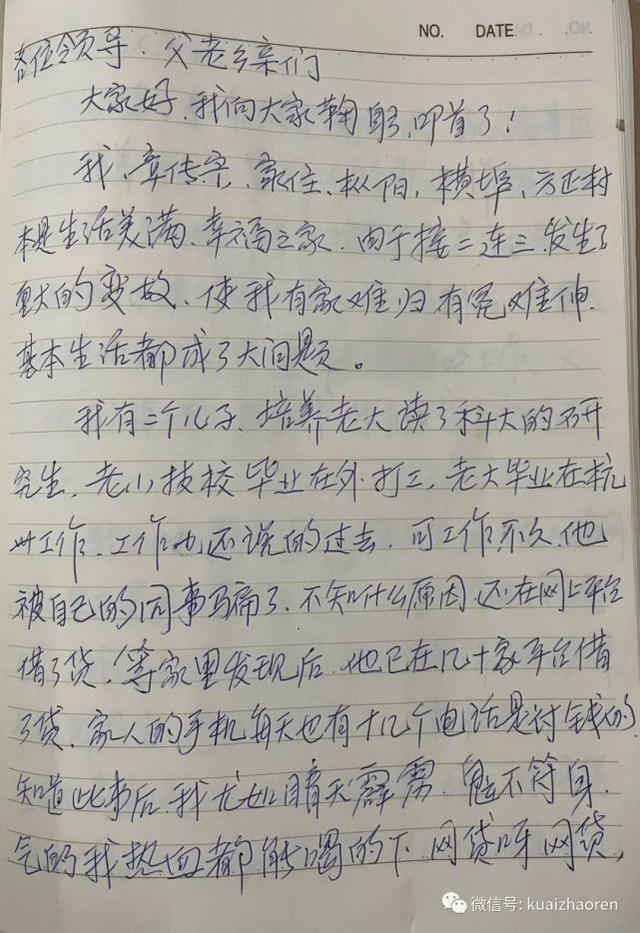 NO. DATE
各位领导.父老乡亲们
大家好.我向大家鞠躬,叩首了!
我、章传宗、家住、枞阳,横埠、方正村
本是生活美满、幸福之家.由于接二连三发生了
重大的变故、使我有家难归有冤难伸.
基本生活都成了大问题。
我有二个儿子、培养老大读了科大的研
究生,老小技校毕业在外打工,老大毕业在杭
州工作、工作也还说的过去.可工作不久.他
被自己的同事骗了、不知什么原因还在网上平台
借了贷,等家里发现后.他已在几十家平台借
了贷、家人的手机每天也有十几个电话是讨钱的
知道此事后.我尤如晴天霹雳.魂不符身.
气的我热血都能喝的下.网贷呀网贷,
微信号: kuaizhaoren